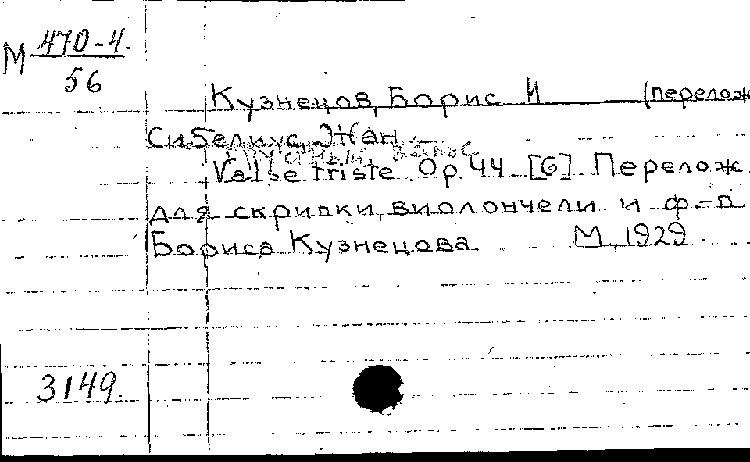 М 470-4.
56
Кузнецов, Борис И (перелож
Сибелиус, Жан.
Valse triste Op. 44 [G] Перелож.
для скрипки, виолончели и ф-п
Бориса Кузнецова М, 1929.
3149.